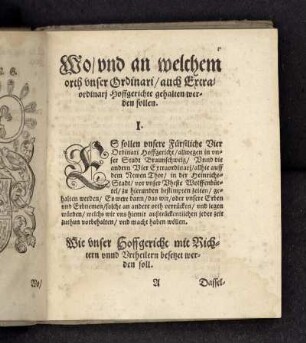 Wo/ vnd an welchem
orth vnser Ordinari/ auch Extra-
ordinarj Hoffgerichte gehalten wer-
den sollen.
I.
ES sollen vnsere Fürstliche Vier
Ordinari Hoffgericht/ allwegen in vn-
ser Stadt Braunschweig/ Vnnd die
andern Vier Extraordinarj/ allhie auff
dem Newen Thor/ in der Heinrichs-
Stadt/ vor vnser Vheste Wolffenbüt-
tel/ zu hierunden bestimpten zeiten/ ge-
halten werden/ Es were dann/ das wir/ oder vnsere Erben
vnd Erbnemen/ solche an andere orth verrücken/ vnd legen
würden/ welchs wir vns hiemit außdrücklichen jeder zeit
zuthun vorbehalten/ vnd macht haben wöllen.
Wie vnser Hoffgericht mit Rich-
tern vnnd Vrtheilern besetzt wer-
den soll.
A
Dassel-